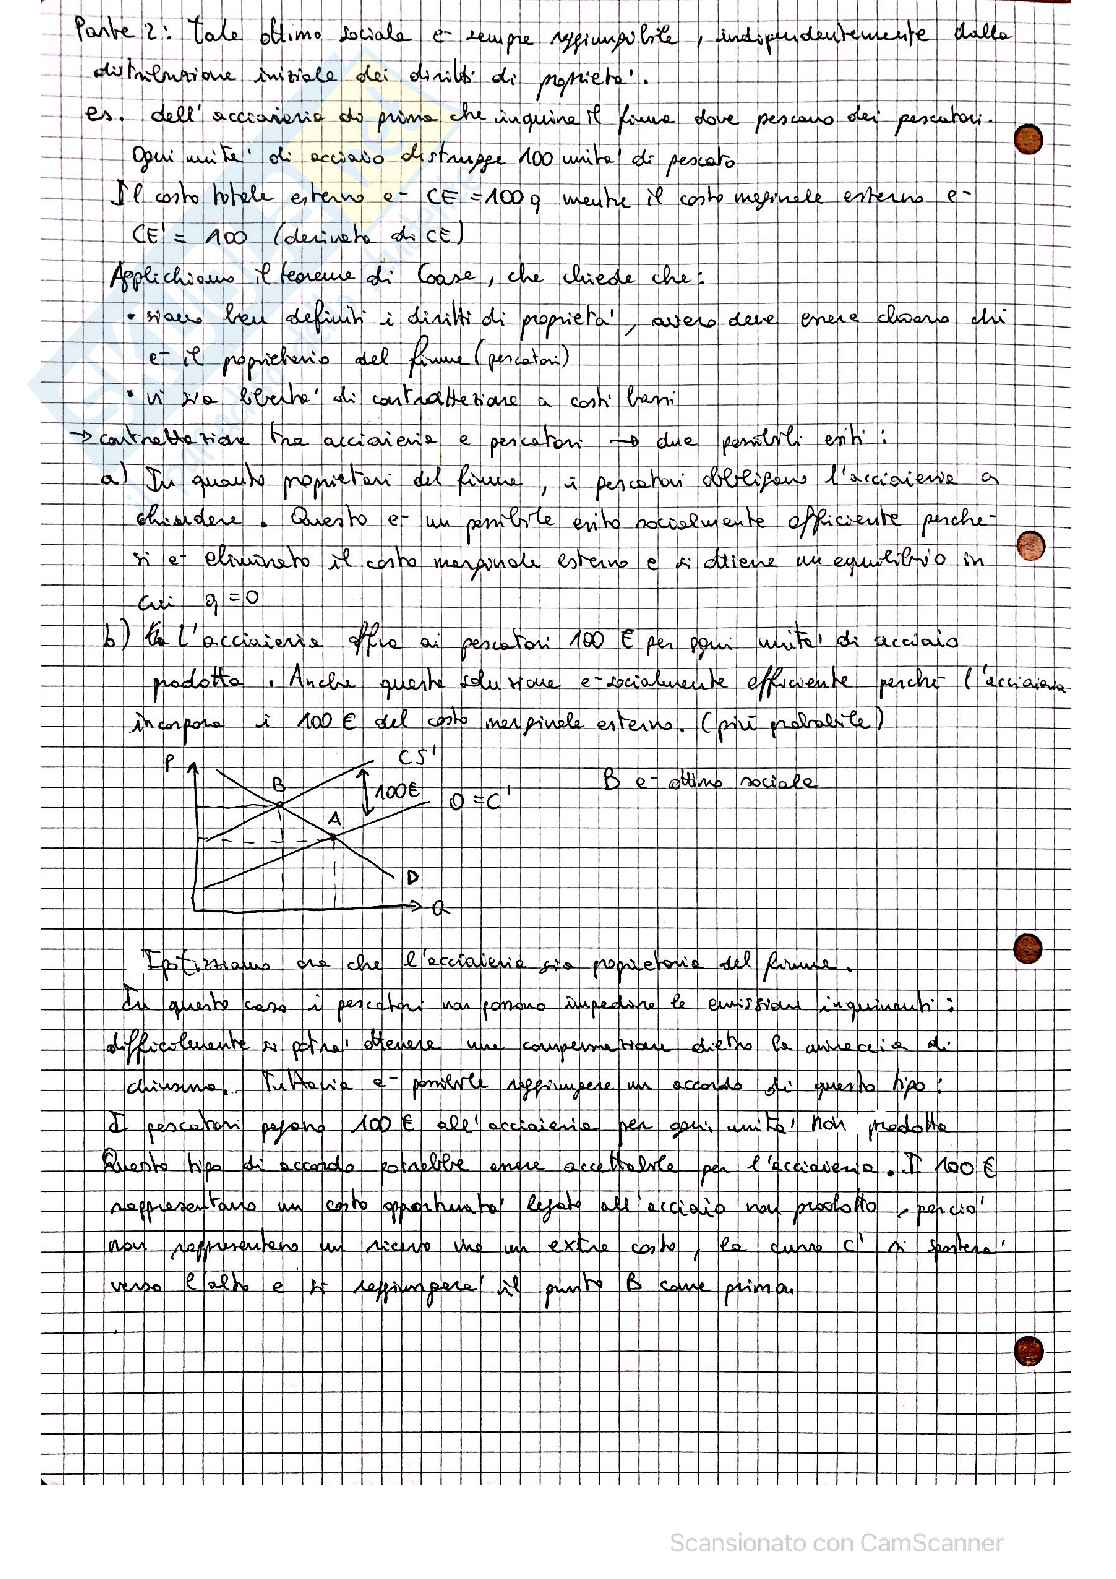 Parte 2: Tale ottimo sociale e- sempre raggiungibile, indipendentemente dalla
distribuzione iniziale dei diritti di proprieta'.
es. dell' acciaieria di prima che inquina il fiume dove pescano dei pescatori.
Ogni unita' di acciaio distrugge 100 unita' di pescato
Il costo totale esterno e- CE = 100 q mentre il costo marginale esterno e-
CE' = 100 (derivata di CE)
Applichiamo il teorema di Coase, che chiede che:
• siano ben definiti i diritti di proprieta', ovvero deve essere chiaro chi
e- il proprietario del fiume (pescatori)
• vi sia liberta' di contrattazione a costi bassi
→ contrattazione tra acciaieria e pescatori → due possibili esiti:
a) In quanto proprietari del fiume, i pescatori obbligano l'acciaieria a
chiudere. Questo e- un possibile esito socialmente efficiente perche-
si e- eliminato il costo marginale esterno e si ottiene un equilibrio in
cui q = 0
b) L'acciaieria offre ai pescatori 100 € per ogni unita' di acciaio
prodotta. Anche questa soluzione e- socialmente efficiente perche' l'acciaieria
incorpora i 100 € del costo marginale esterno. (piu' probabile)
P
CS'
B
100€
O = C'
A
D
Q
B e- ottimo sociale
Ipotizziamo ora che l'acciaieria sia proprietaria del fiume.
In questo caso i pescatori non possono impedire le emissioni inquinanti:
difficilmente si potra' ottenere una compensazione dietro la minaccia di
chiusura. Tuttavia e- possibile raggiungere un accordo di questo tipo:
I pescatori pagano 100 € all'acciaieria per ogni unita' non prodotta
Questo tipo di accordo potrebbe essere accettabile per l'acciaieria. I 100 €
rappresentano un costo opportunita' legato all'acciaio non prodotto, percio'
non rappresentano un ricavo ma un extra costo, la curva C' si spostera'
verso l'alto e si raggiungera' il punto B come prima.
Scansionato con CamScanner